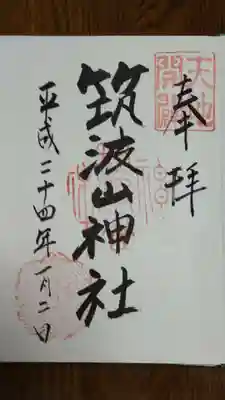 奉拝
天地開闢
筑波山神社
平成二十四年一月二日